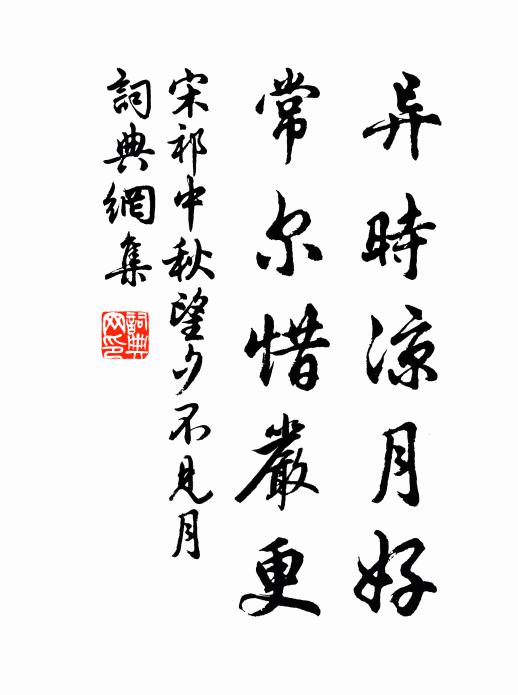 异時凉月好
常尔惜嚴更
宋祁中秋望夕不見月
詞典網集
詞典網印